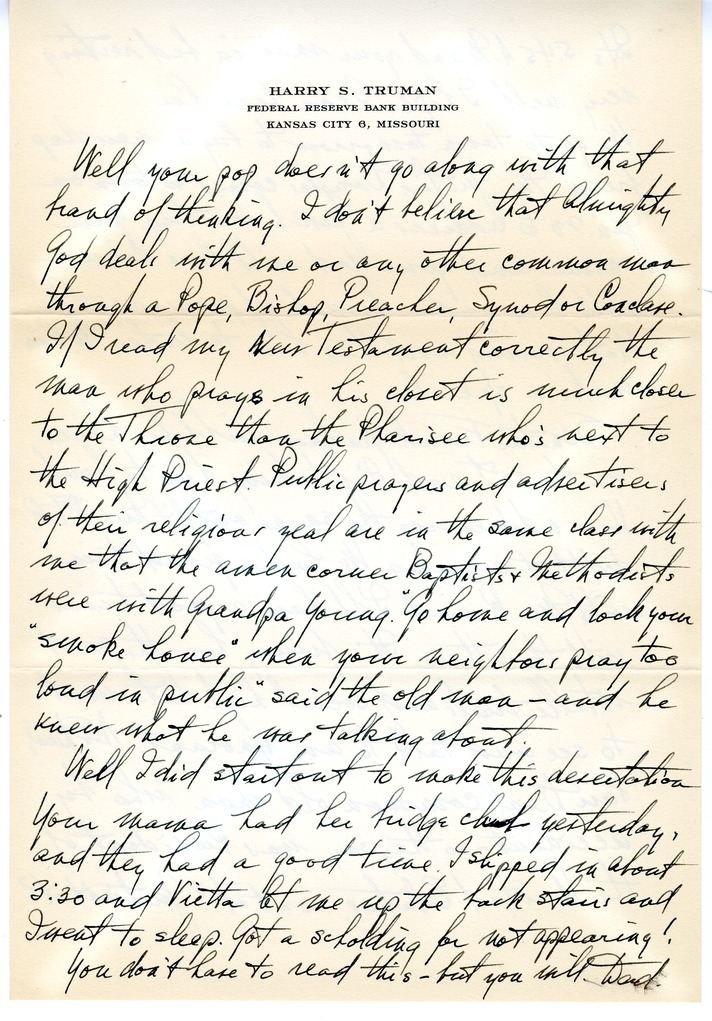 HARRY S. TRUMAN
FEDERAL RESERVE BANK BUILDING
KANSAS CITY 6, MISSOURI
Well your pop doesn't go along with that
brand of thinking. I don't believe that Almighty
God deals with me or any other common man
through a Pope, Bishop, Preacher, Synod or Conclave.
If I read my New Testament correctly the
man who prays in his closet is much closer
to the Throne than the Pharisee who's next to
the High Priest. Public prayers and advertisers
of their religious zeal are in the same class with
me that the amen corner Baptists & Methodists
were with Grandpa Young. "Go home and lock your
"smoke house" when your neighbors pray too
loud in public" said the old man – and he
knew what he was talking about.
Well I did start out to make this desertation
Your mama had her bridge club yesterday,
and they had a good time. I slipped in about
3:30 and Vietta let me up the back stairs and
I went to sleep. Got a scholding for not appearing!
You don't have to read this – but you will. Dad.